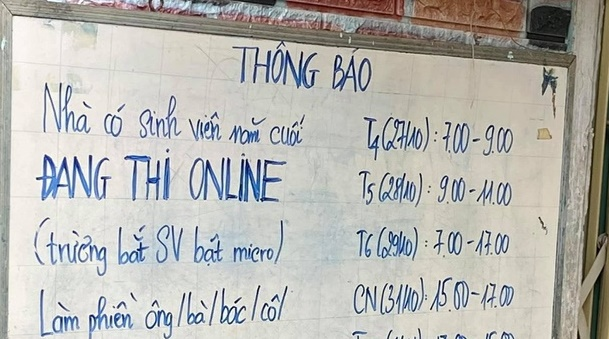 THÔNG BÁO
Nhà có sinh viên năm cuối
ĐANG THI ONLINE
(trường bắt SV bật micro)
Làm phiền ông/bà/bác/cô/
T4(27/10): 7.00 - 9.00
T5(28/10): 9.00 - 11.00
T6(29/10): 7.00 - 17.00
CN(31/10): 15.00 - 17.00